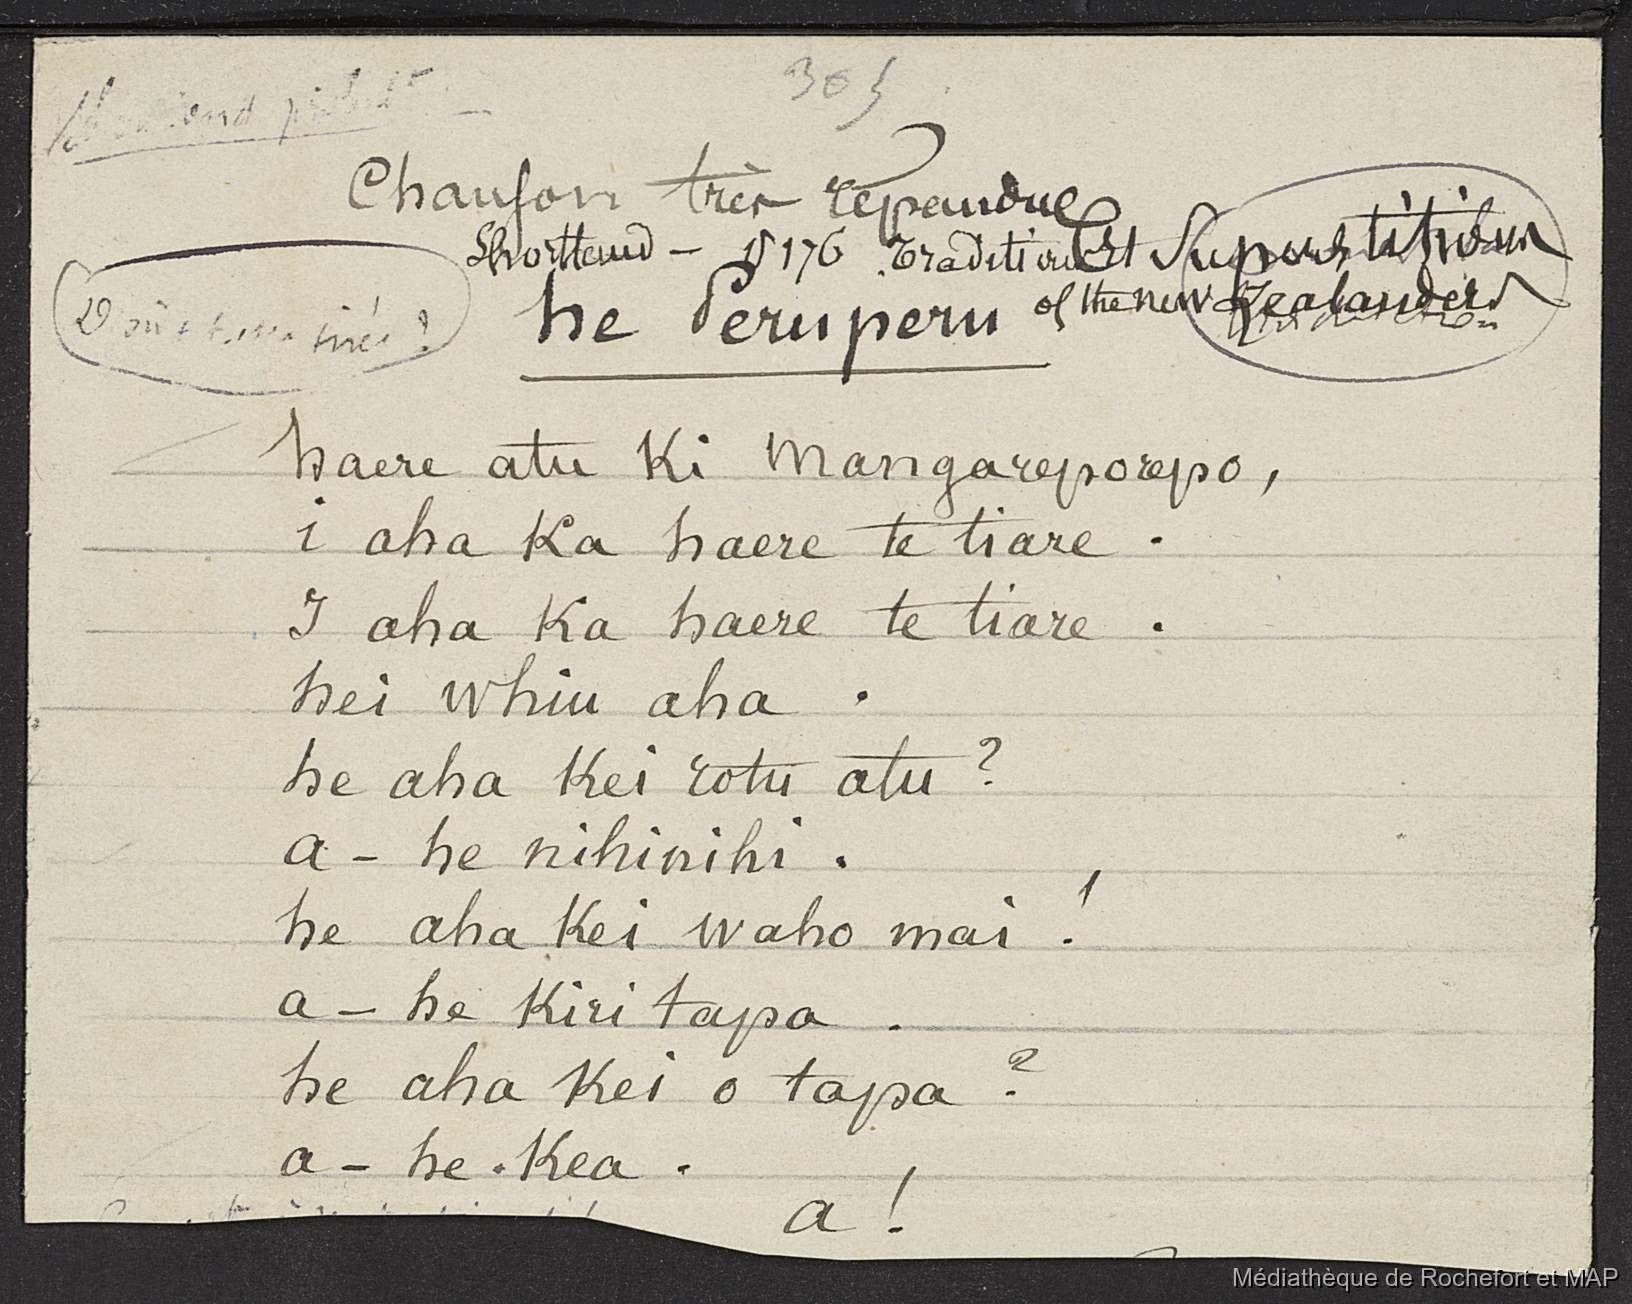 305
Chanson très répandue
Shortland - p 176 Traditions et Superstitions
of the new Zealanders
D'où est-ce tiré ?
he Peruperu
haere atu ki Mangareporepo,
i aha ka haere te tiare .
I aha ka haere te tiare .
hei whiu aha .
he aha kei rotu atu ?
a - he nihinihi .
he aha kei waho mai !
a - he kiri tapa .
he aha kei o tapa ?
a - he . kea .
a !
Médiathèque de Rochefort et MAP